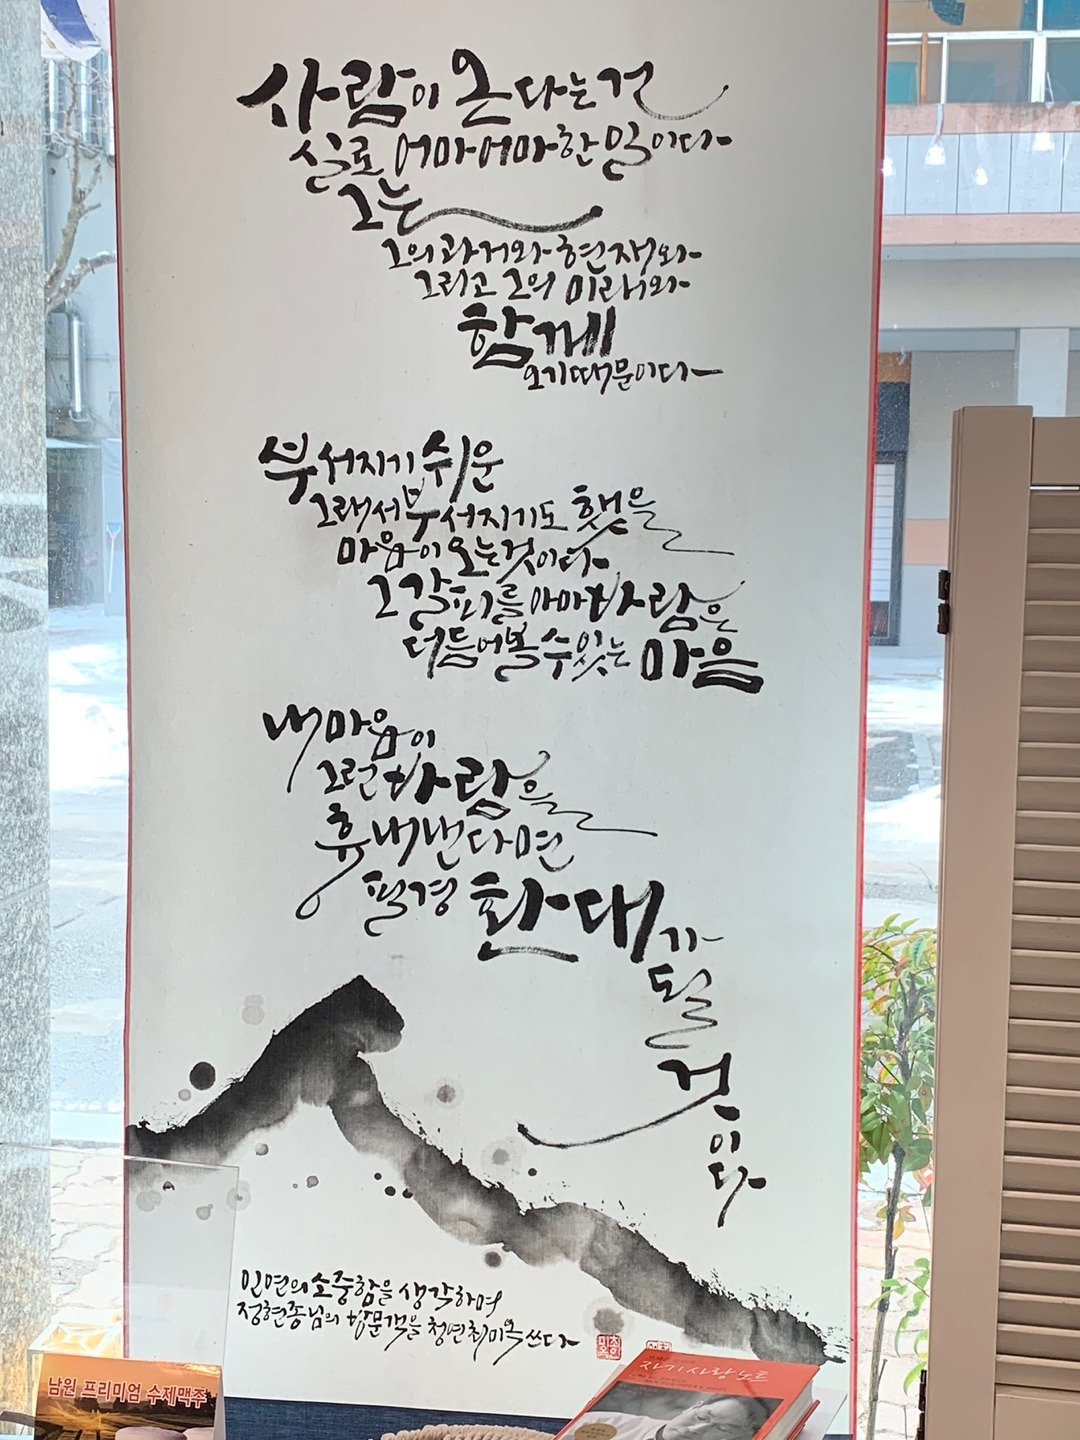 사람이 온다는 건
실로 어마어마한 일이다
그는
그의 과거와 현재와
그리고 그의 미래와
함께
오기 때문이다
부서지기 쉬운
그래서 부서지기도 했을
마음이 오는 것이다
그 갈피를 아마 바람은
더듬어 볼 수 있는 마음
내 마음이
그런 바람을
흉내낸다면
필경 환대가
될
것
이다
인연의 소중함을 생각하며
정현종님의 방문객을 청연 최미옥 쓰다
자기 사랑 노트
남원 프리미엄 수제맥주